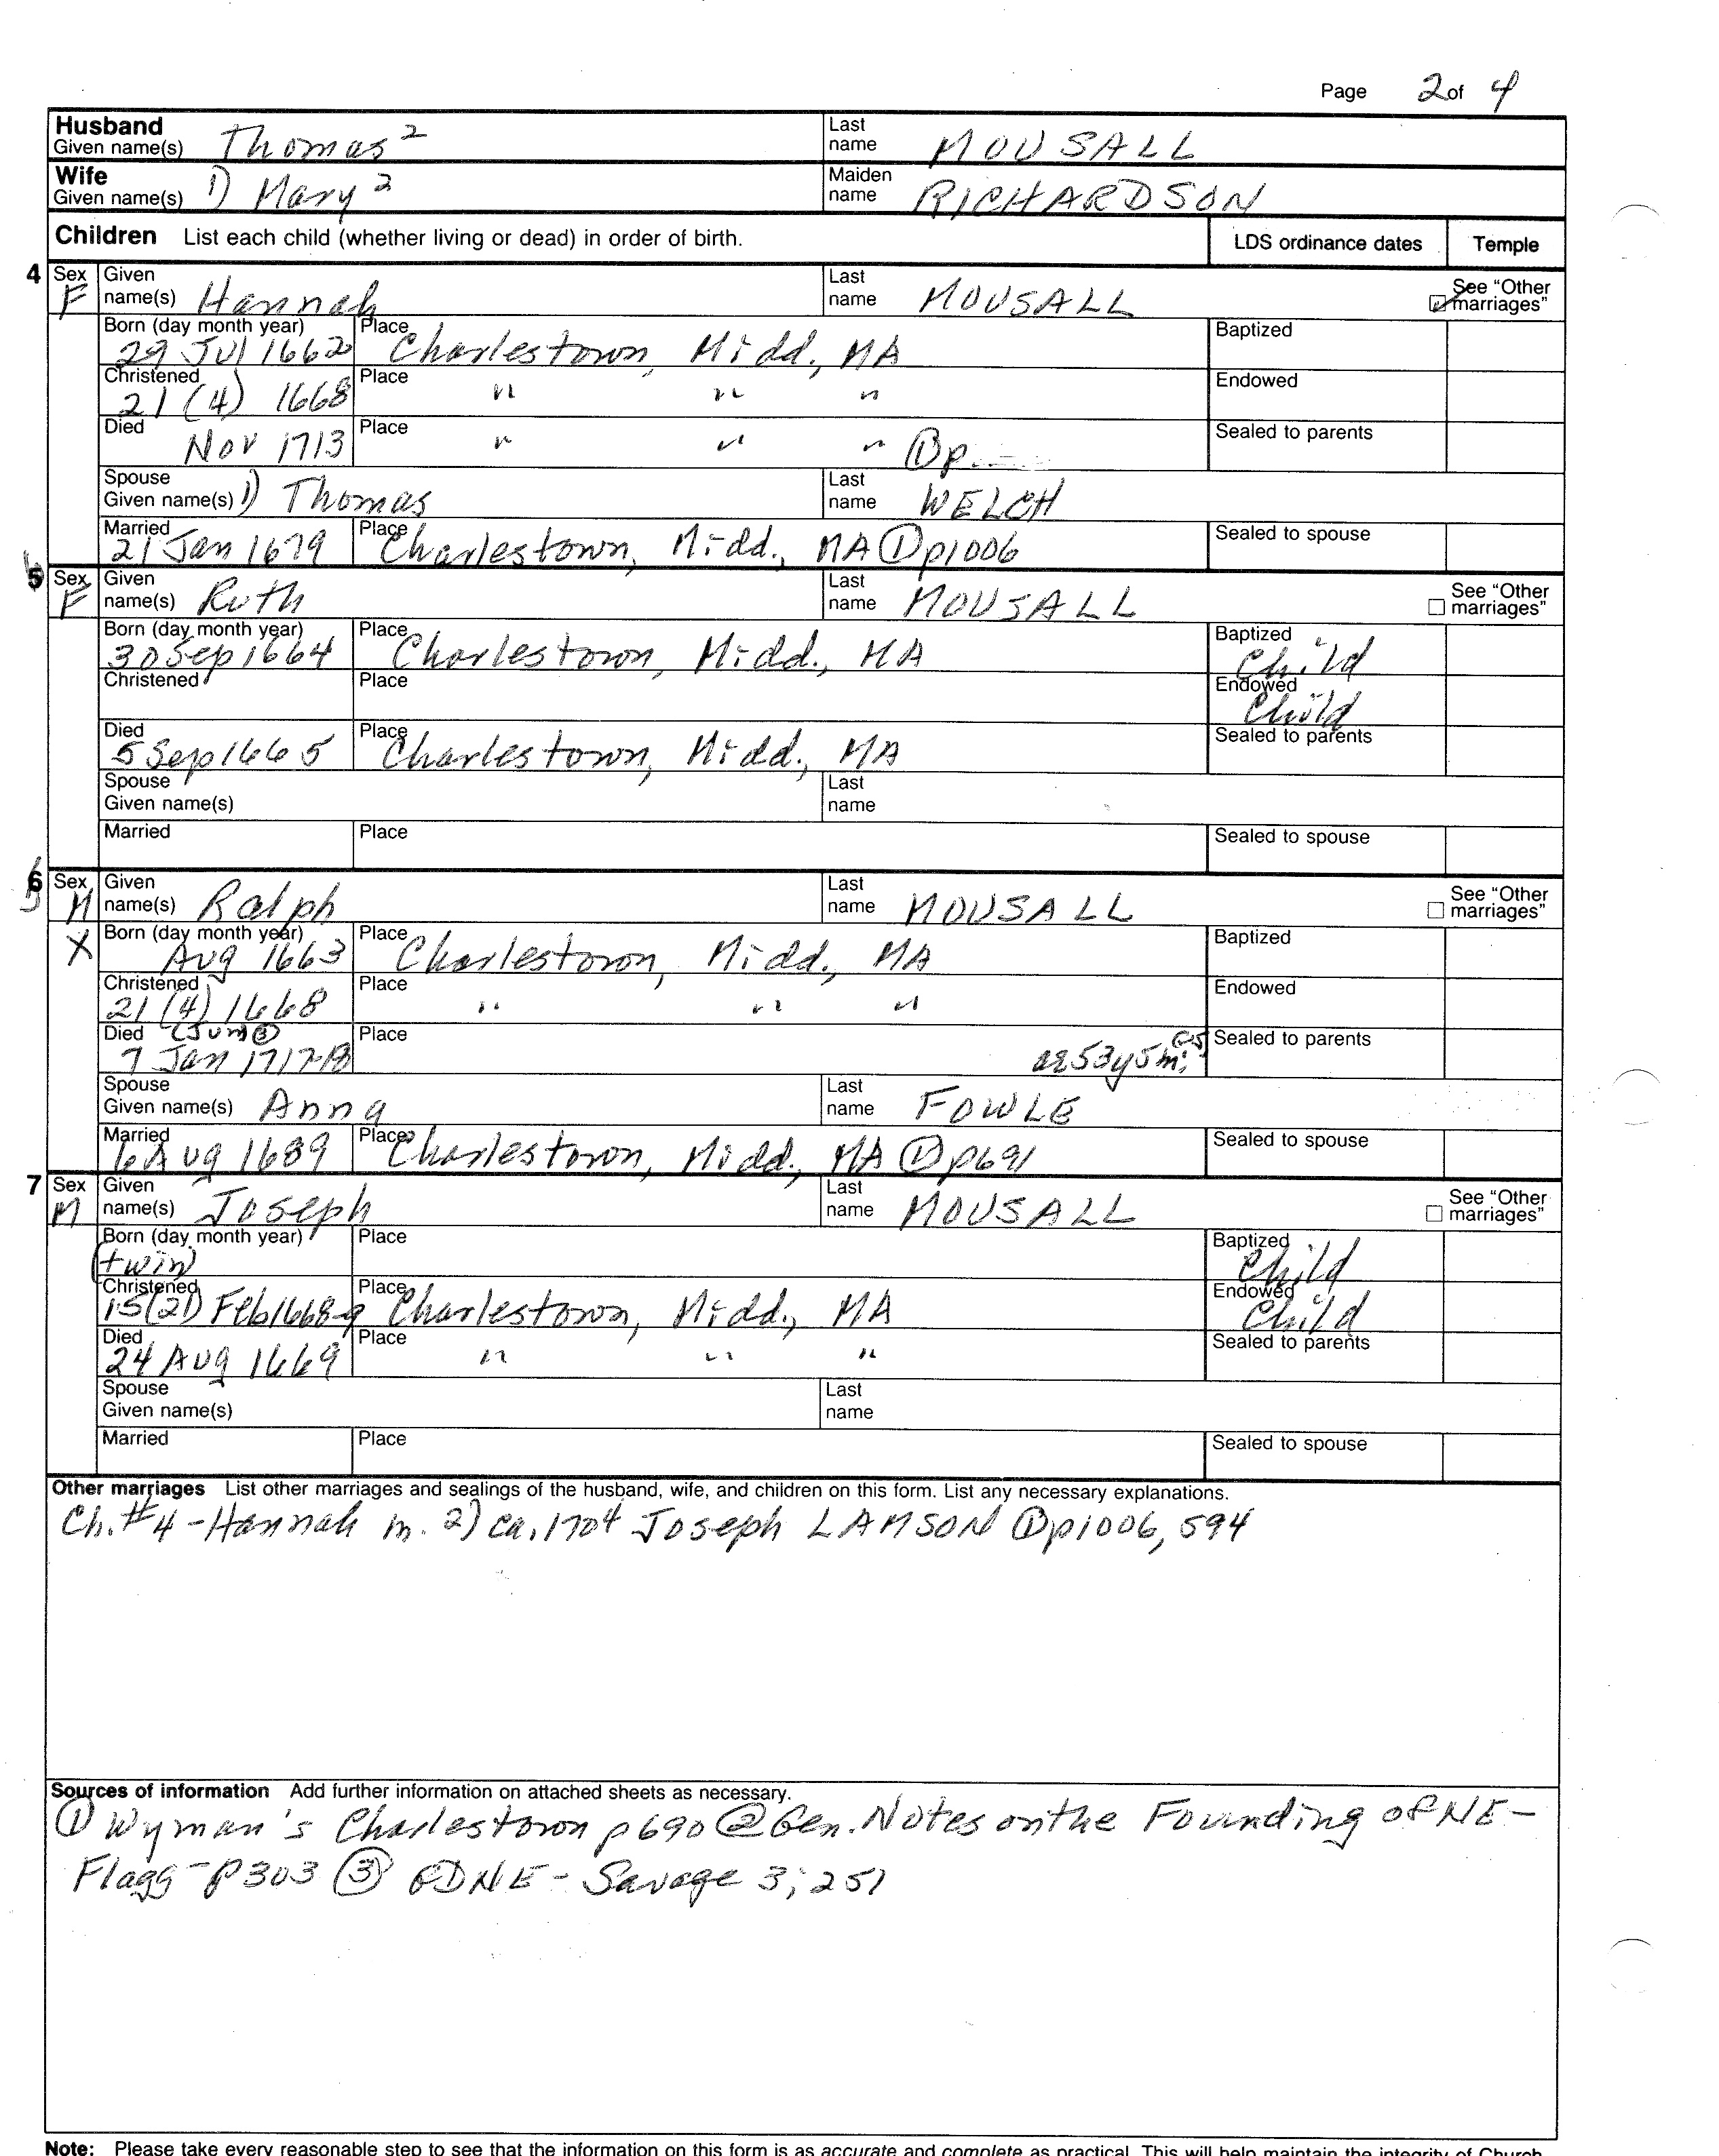 Page 2 of 4
Husband Given name(s) Thomas² Last name MOUSALL
Wife Given name(s) 1) Mary² Maiden name RICHARDSON
Children List each child (whether living or dead) in order of birth. LDS ordinance dates Temple
4 Sex F Given name(s) Hannah Last name MOUSALL See "Other marriages"
Born (day month year) 29 Jul 1662 Place Charlestown, Midd., MA Baptized
Christened 21 (4) 1668 Place " " " Endowed
Died Nov 1713 Place " " " ① p. Sealed to parents
Spouse Given name(s) 1) Thomas Last name WELCH
Married 21 Jan 1679 Place Charlestown, Midd., MA ① p1006 Sealed to spouse
5 6 Sex F Given name(s) Ruth Last name MOUSALL See "Other marriages"
Born (day month year) 30 Sep 1664 Place Charlestown, Midd., MA Baptized Child
Christened Place Endowed Child
Died 5 Sep 1665 Place Charlestown, Midd., MA Sealed to parents
Spouse Given name(s) Last name
Married Place Sealed to spouse
6 5 Sex M Given name(s) Ralph Last name MOUSALL See "Other marriages"
X Born (day month year) Aug 1663 Place Charlestown, Midd., MA Baptized
Christened 21 (4) 1668 Place " " " Endowed
Died (Jun ③) 7 Jan 1717-18 Place ae 53y 5m; GS Sealed to parents
Spouse Given name(s) Anna Last name FOWLE
Married 6 Aug 1689 Place Charlestown, Midd., MA ① p691 Sealed to spouse
7 Sex M Given name(s) Joseph Last name MOUSALL See "Other marriages"
Born (day month year) (twin Place Baptized Child
Christened 15(21) Feb 1668-9 Place Charlestown, Midd., MA Endowed Child
Died 24 Aug 1669 Place " " " Sealed to parents
Spouse Given name(s) Last name
Married Place Sealed to spouse
Other marriages List other marriages and sealings of the husband, wife, and children on this form. List any necessary explanations.
Ch. #4 - Hannah m. 2) ca. 1704 Joseph LAMSON ① p1006, 594
Sources of information Add further information on attached sheets as necessary.
① Wyman's Charlestown p690 ② Gen. Notes on the Founding of NE -
Flagg - p303 ③ GDNE - Savage 3; 251
Note: Please take every reasonable step to see that the information on this form is as accurate and complete as practical. This will help maintain the integrity of Church